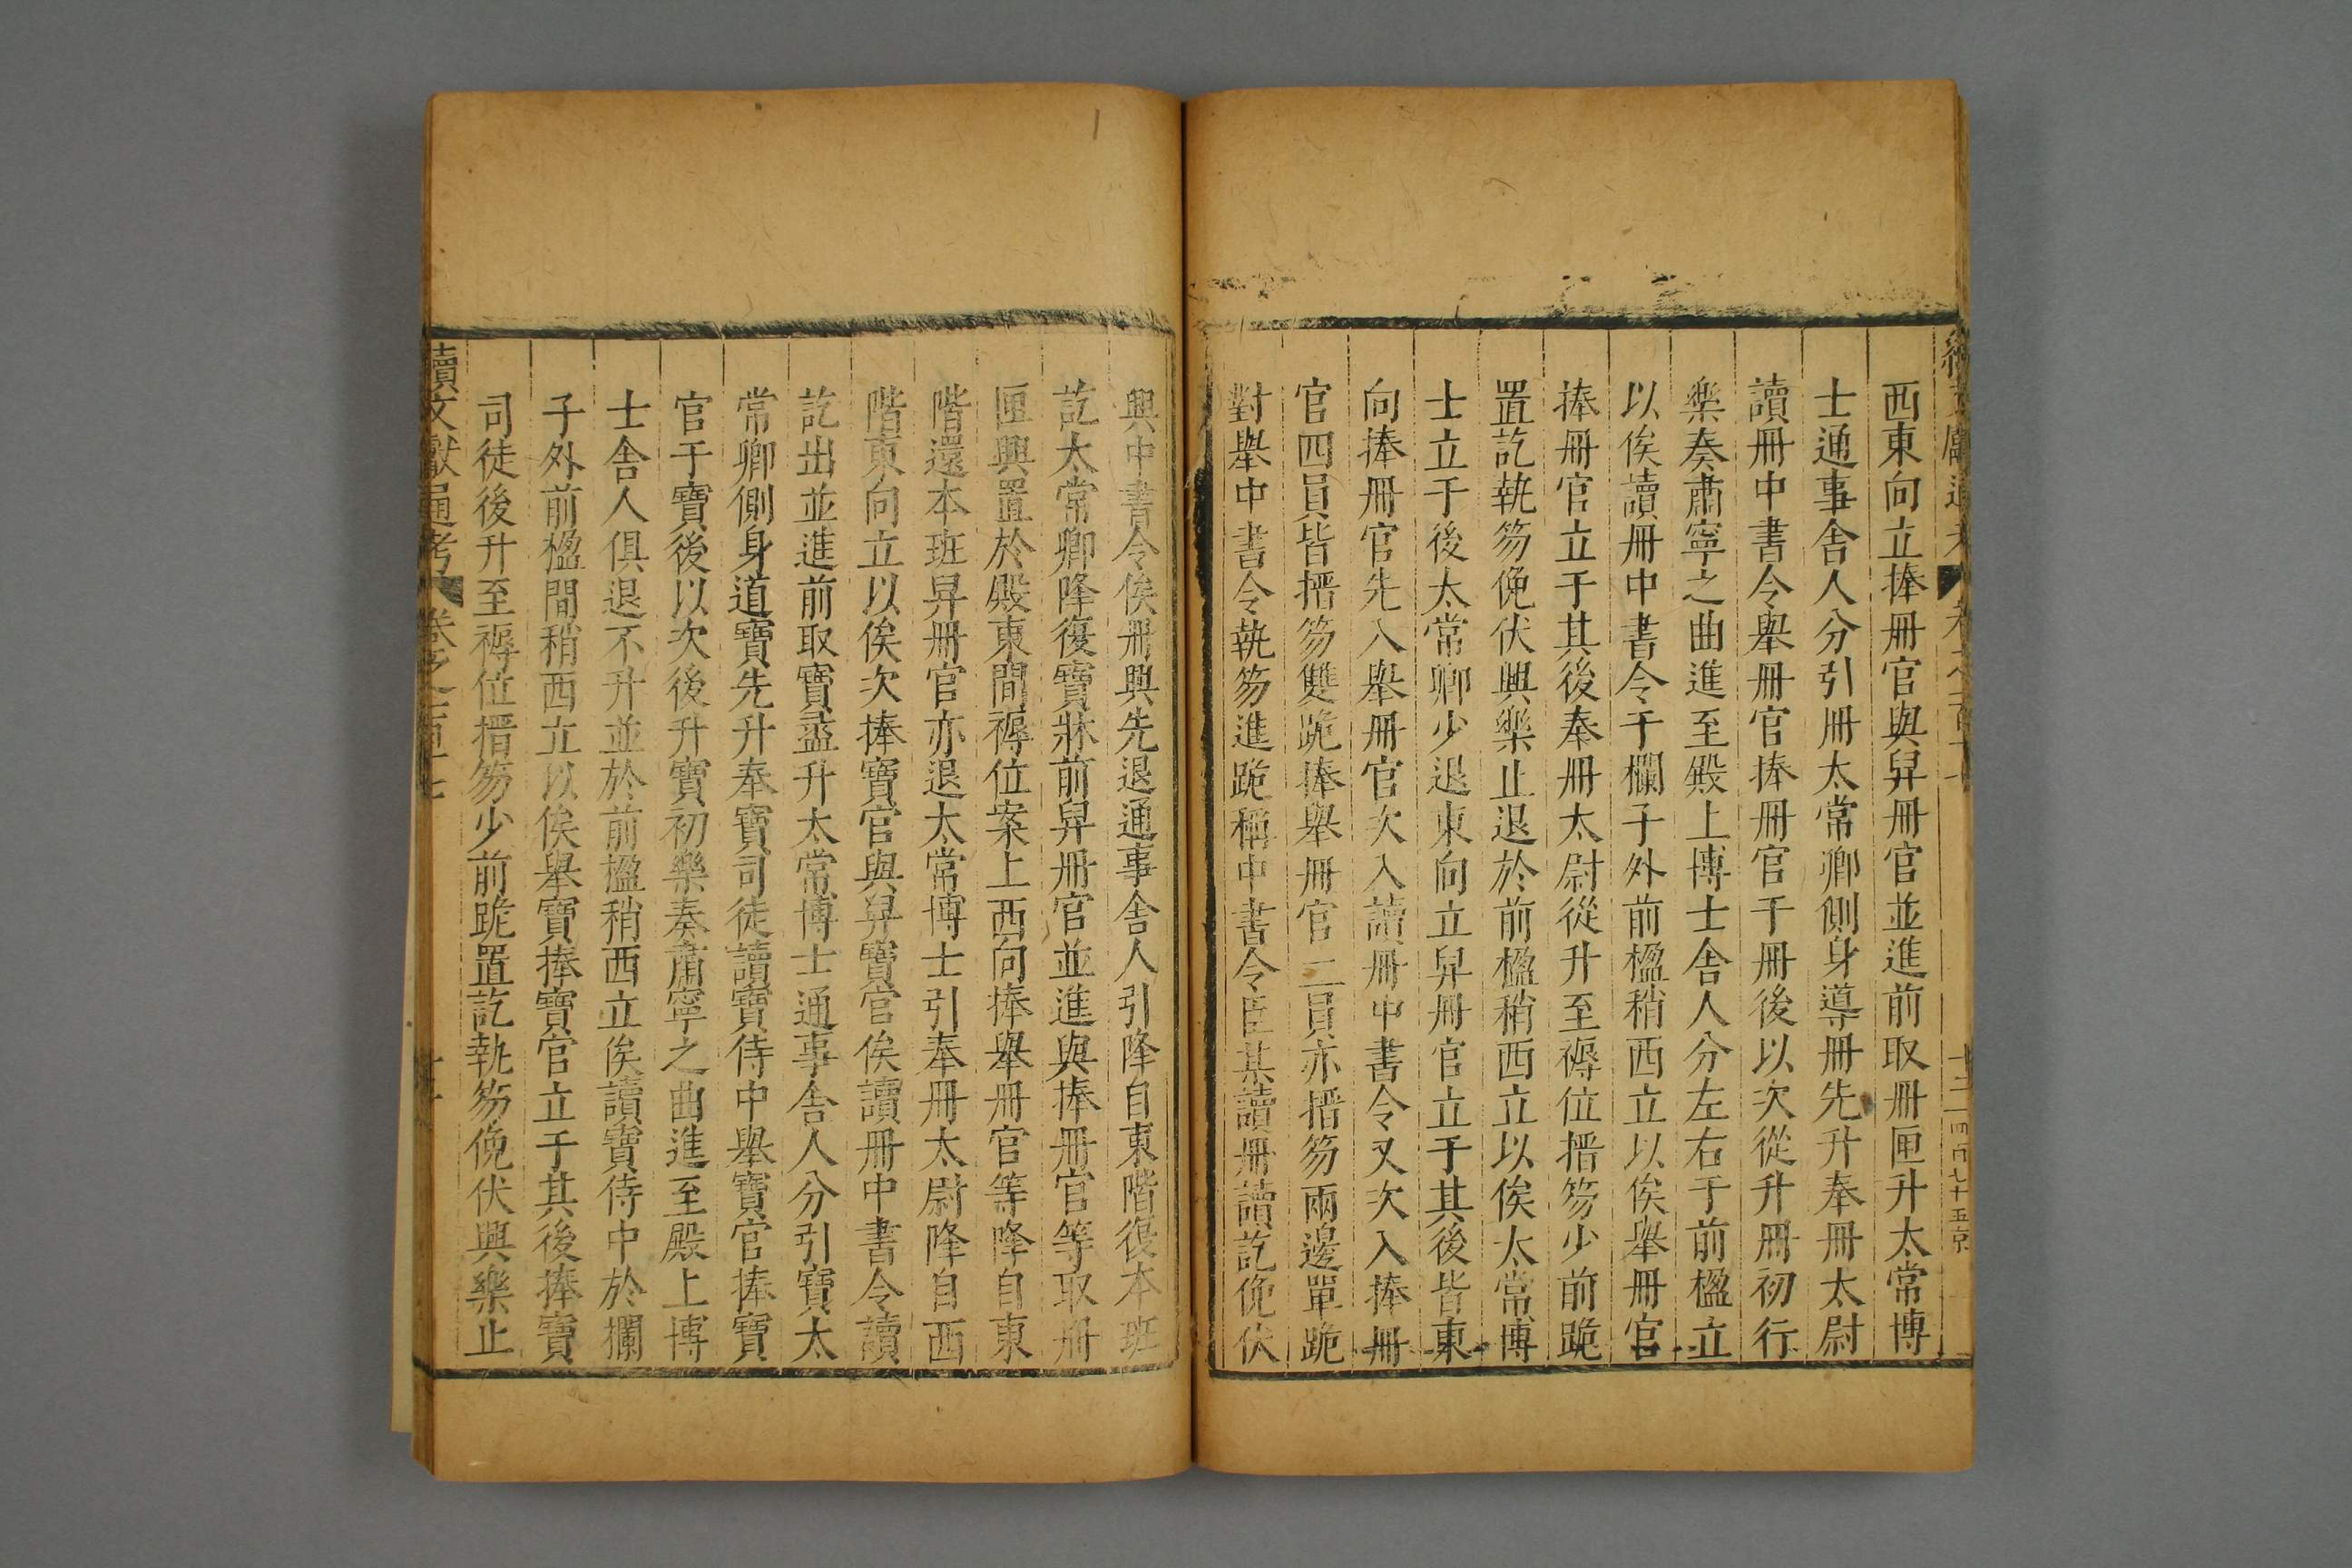 西東向立捧冊官與舁冊官並進前取冊匣升太常博
士通事舍人分引冊太常卿側身導冊先升奉冊太尉
讀冊中書令舉冊官捧冊官于冊後以次從升冊初行
樂奏肅寧之曲進至殿上博士舍人分左右于前楹立
以俟讀冊中書令于欄子外前楹稍西立以俟舉冊官
捧冊官立于其後奉冊太尉從升至褥位搢笏少前跪
置訖執笏俛伏興樂止退於前楹稍西立以俟太常博
士立于後太常卿少退東向立舁冊官立于其後皆東
向捧冊官先入舉冊官次入讀冊中書令又次入捧冊
官四員皆搢笏雙跪捧舉冊官二員亦搢笏兩邊單跪
對舉中書令執笏進跪稱中書令臣某讀冊讀訖俛伏
興中書令俟冊興先退通事舍人引降自東階復本班
訖太常卿降復寶牀前舁冊官並進與捧冊官等取冊
匣興置於殿東間褥位案上西向捧舉冊官等降自東
階還本班舁冊官亦退太常博士引奉冊太尉降自西
階東向立以俟次捧寶官與舁寶官俟讀冊中書令讀
訖出並進前取寶盝升太常博士通事舍人分引寶太
常卿側身道寶先升奉寶司徒讀寶侍中舉寶官捧寶
官于寶後以次後升寶初樂奏肅寧之曲進至殿上博
士舍人俱退不升並於前楹稍西立俟讀寶侍中於欄
子外前楹間稍西立以俟舉寶捧寶官立于其後捧寶
司徒後升至褥位搢笏少前跪置訖執笏俛伏興樂止
續文獻通考 卷之一百十七